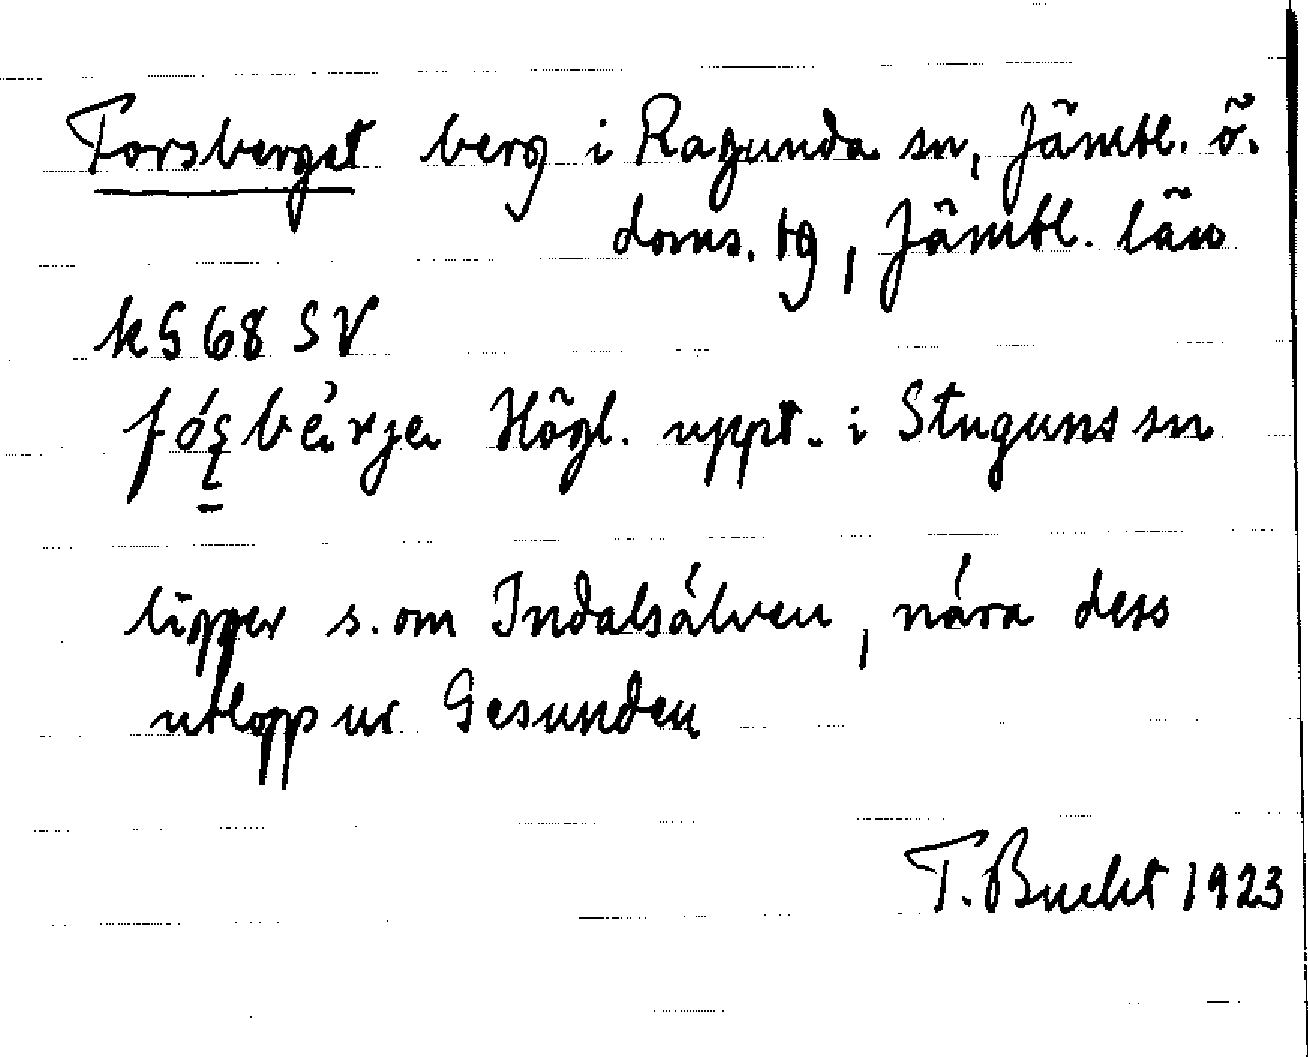 Forsberget berg i Ragunda sn, Jämtl. ö.
doms. tg, Jämtl. län
kG 68 SV
Högl. uppt. i Stuguns sn
ligger s. om Indalsälven, nära dess
utlopp ur Gesunden
T. Bucht 1923